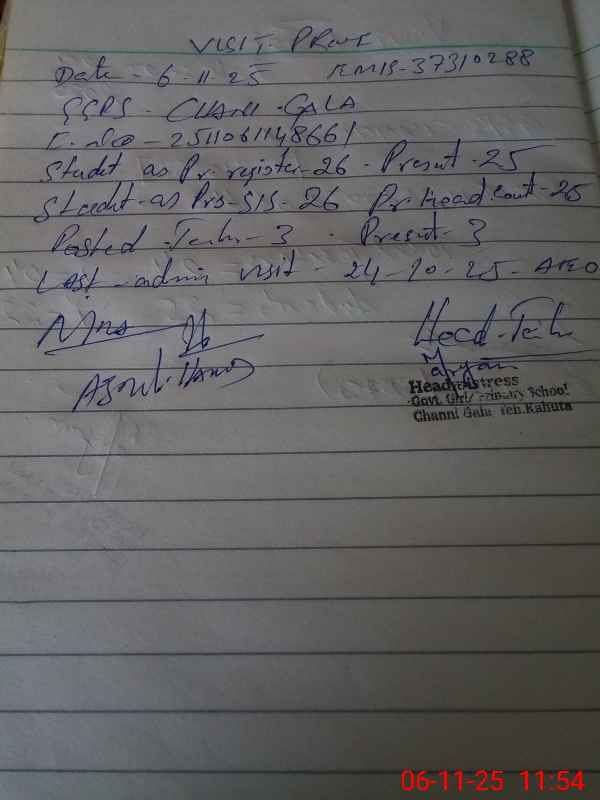 VISIT PROOF
Date - 6-11-25 EMIS-37310288
GGPS - CHANI - GALA
E. No - 2511061148661
Studet as Pr register-26 - Present - 25
Studet-as Pro-SIS-26 Pr Head.Count-25
Posted Teahr-3 . Present-3
Last-admin visit - 24-10-25-AEO
Head-Teahr
Headmistress
Govt. Girls Primary School
Channi Gala Teh.Kahuta
06-11-25 11:54